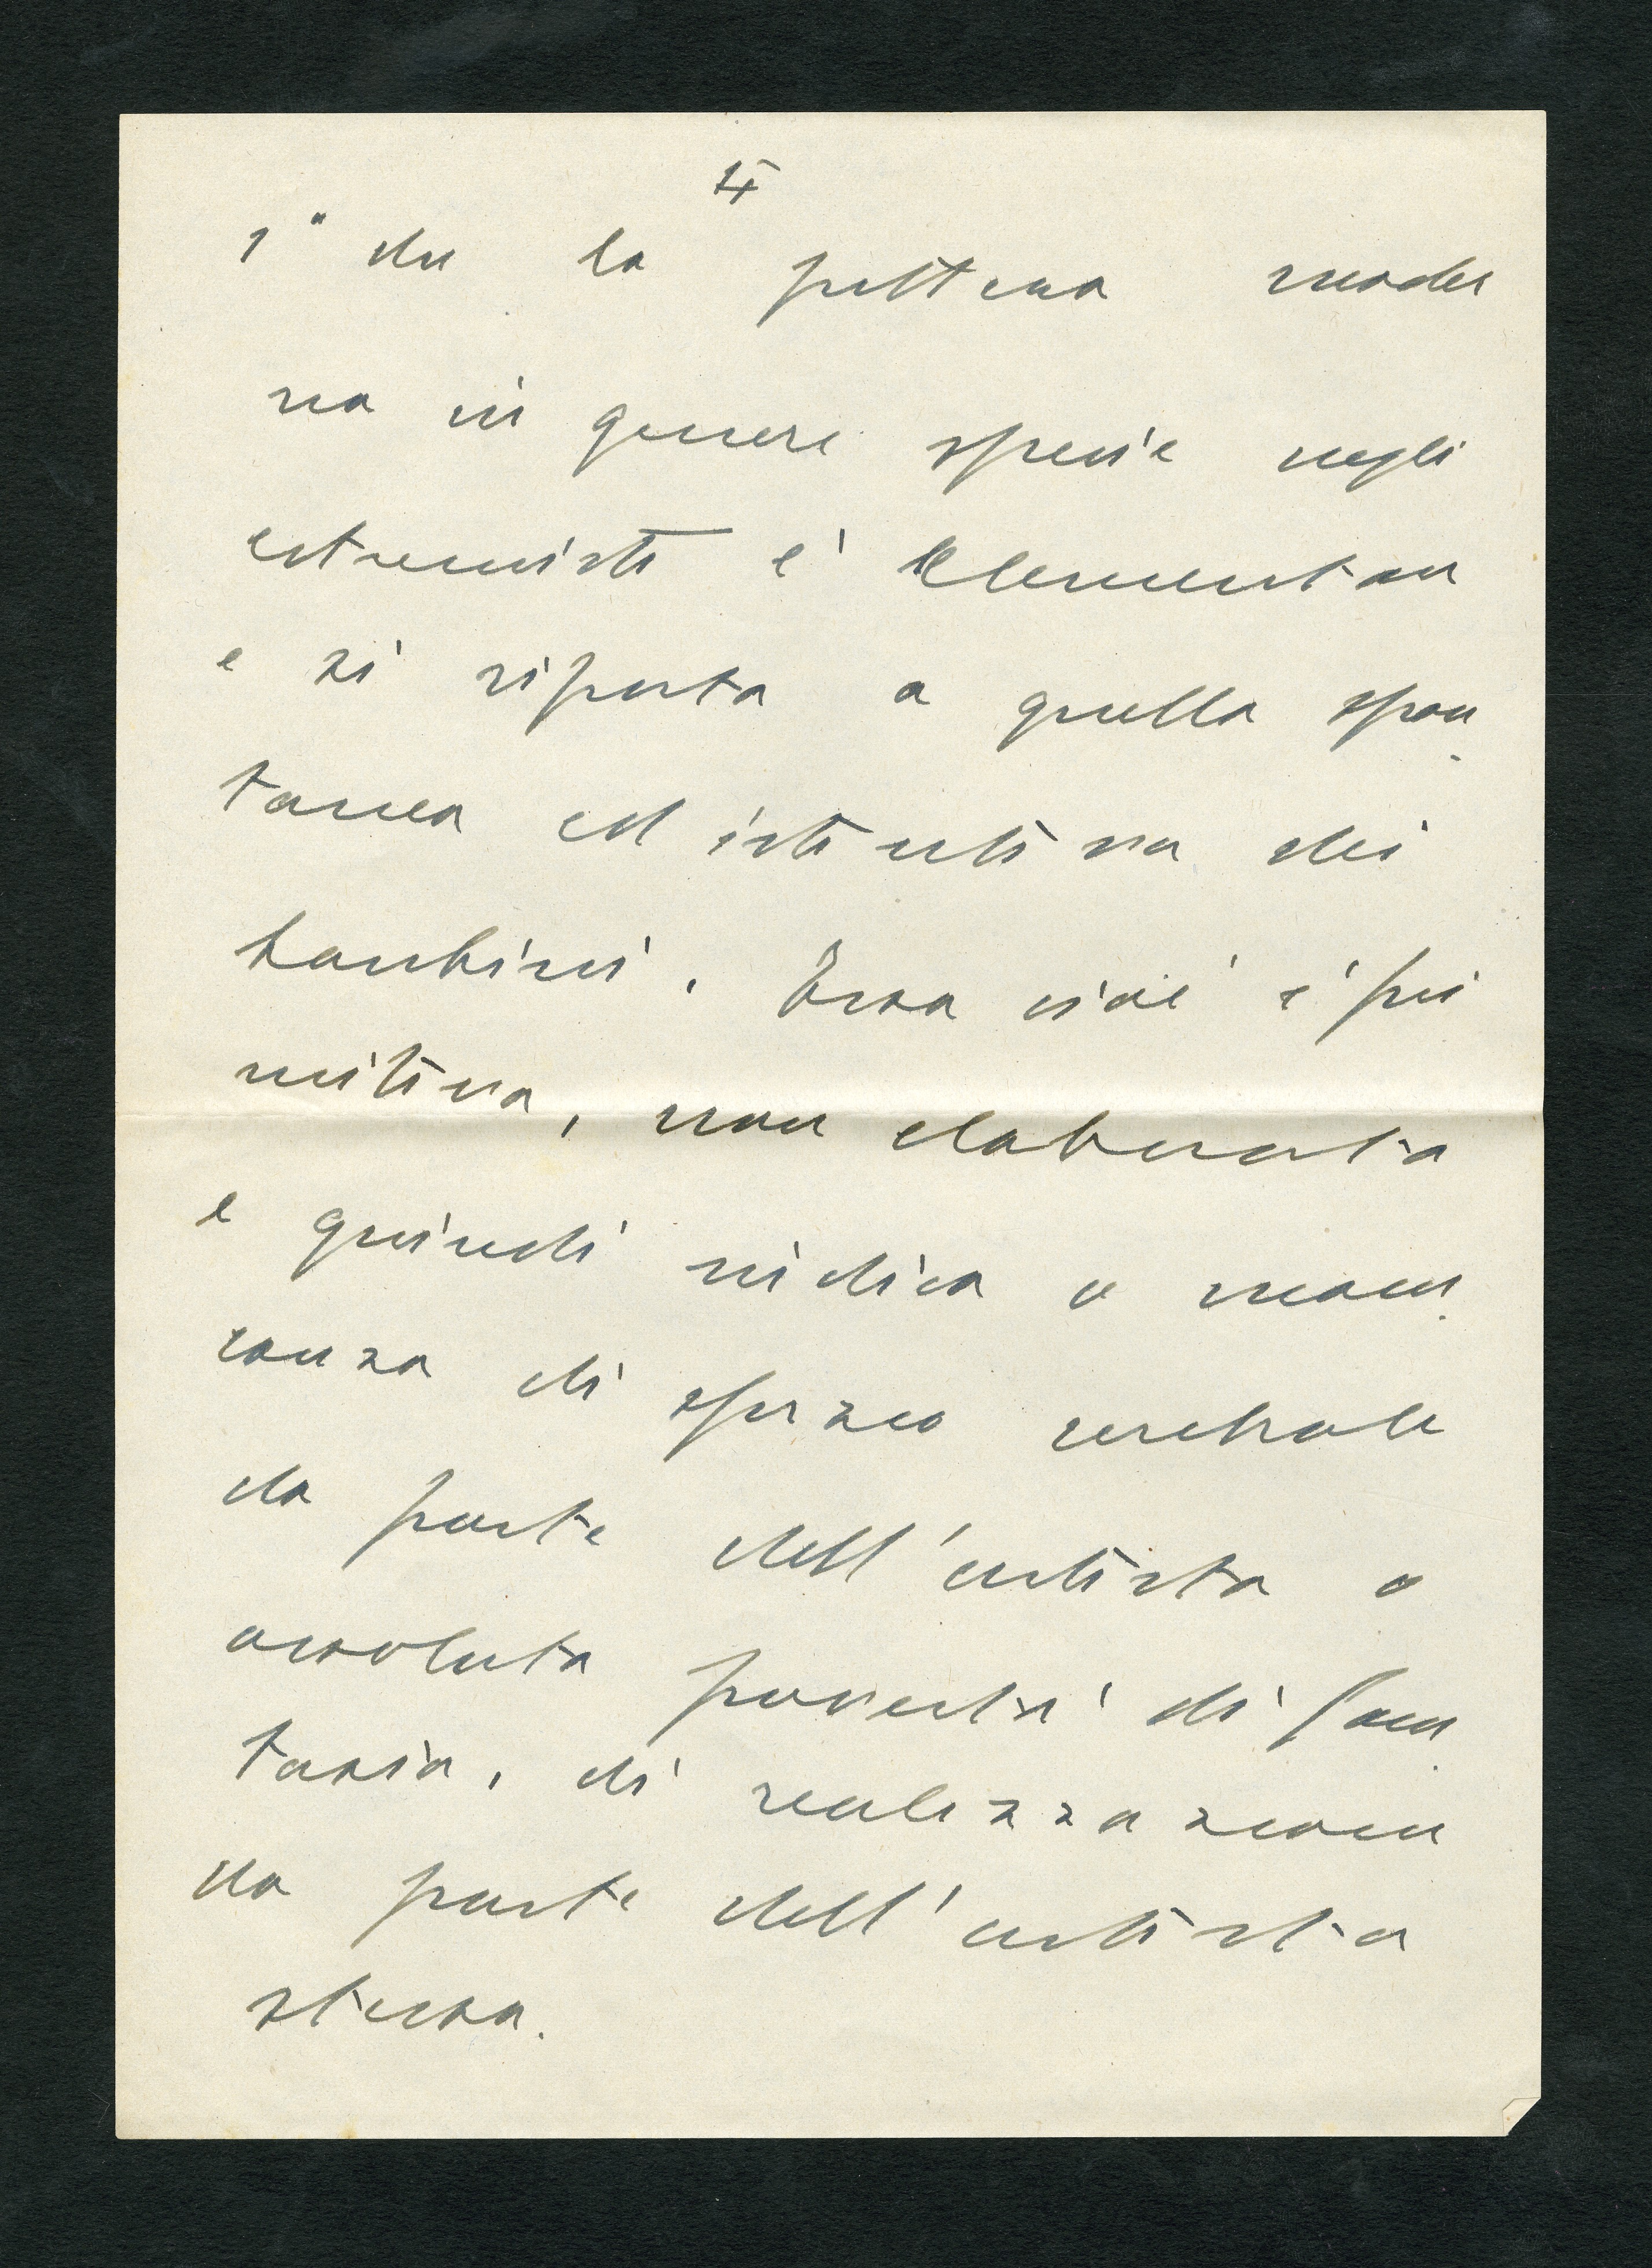 4
1° che la pittura moder
na in genere specie negli
estremisti è elementare
e si riporta a quella spon
tanea ed istintiva dei
bambini. Essa cioè è pri
mitiva, non elaborata
e quindi indica o man
canza di sforzo cerebrale
da parte dell'artista o
assoluta povertà di fan
tasia, di realizzazione
da parte dell'artista
stesso.